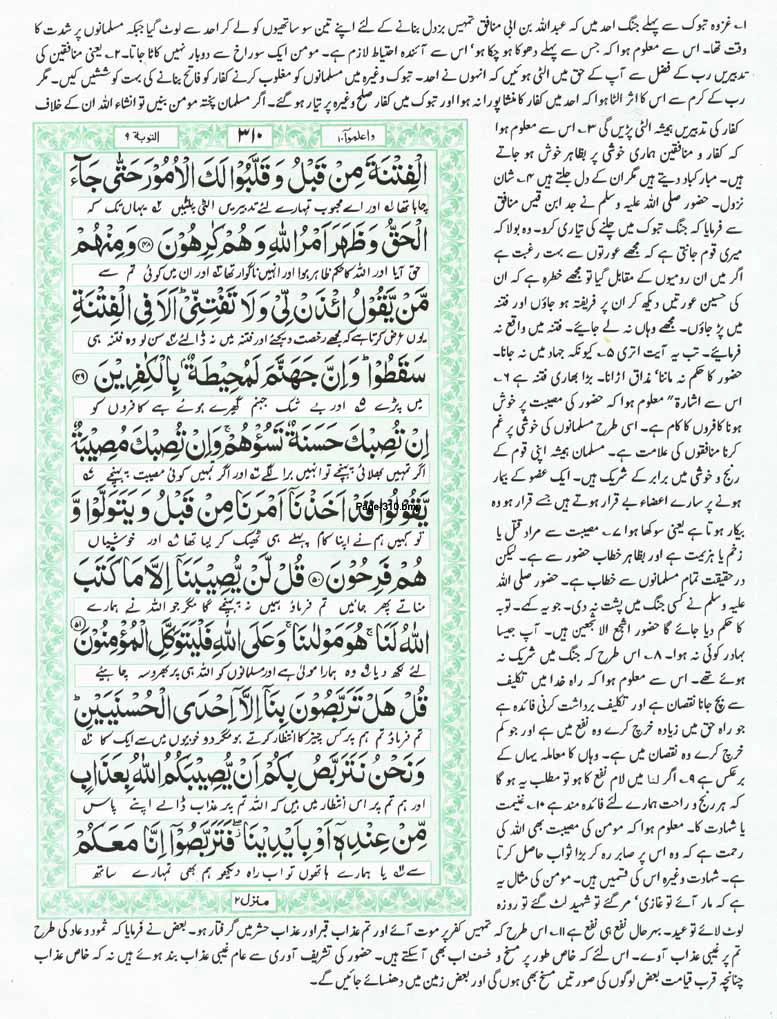 ۱۔ غزوہ تبوک سے پہلے جنگ احد میں کہ عبداللہ بن ابی منافق تمہیں بزدل بنانے کے لئے اپنے تین سو ساتھیوں کو لے کر احد سے لوٹ گیا جبکہ مسلمانوں پر شدت کا
وقت تھا۔ اس سے معلوم ہوا کہ جس سے پہلے دھوکا ہو چکا ہو' اس سے آئندہ احتیاط لازم ہے۔ مومن ایک سوراخ سے دوبار نہیں کاٹا جاتا۔ ۲۔ یعنی منافقین کی
تدبیریں رب کے فضل سے آپ کے حق میں الٹی ہوئیں کہ انہوں نے احد۔ تبوک وغیرہ میں مسلمانوں کو مغلوب کرنے کفار کو فاتح بنانے کی بہت کوششیں کیں۔ مگر
رب کے کرم سے اس کا اثر الٹا ہوا کہ احد میں کفار کا منشا پورا نہ ہوا اور تبوک میں کفار صلح وغیرہ پر تیار ہو گئے۔ اگر مسلمان پختہ مومن بنیں تو انشاء اللہ ان کے خلاف
کفار کی تدبیریں ہمیشہ الٹی پڑیں گی ۳۔ اس سے معلوم ہوا
کہ کفار و منافقین ہماری خوشی پر بظاہر خوش ہو جاتے
ہیں۔ مبارکباد دیتے ہیں مگر ان کے دل جلتے ہیں ۴۔ شان
نزول۔ حضور صلی اللہ علیہ وسلم نے جد ابن قیس منافق
سے فرمایا کہ جنگ تبوک میں چلنے کی تیاری کرو۔ وہ بولا کہ
میری قوم جانتی ہے کہ مجھے عورتوں سے بہت رغبت ہے
اگر میں ان رومیوں کے مقابل گیا تو مجھے خطرہ ہے کہ ان
کی حسین عورتیں دیکھ کر ان پر فریفتہ ہو جاؤں اور فتنہ
میں پڑ جاؤں۔ مجھے وہاں نہ لے جائیے۔ فتنہ میں واقع نہ
فرمایئے۔ تب یہ آیت اتری ۵۔ کیونکہ جہاد میں نہ جانا۔
حضور کا حکم نہ ماننا' مذاق اڑانا۔ بڑا بھاری فتنہ ہے ۶۔
اس سے اشارۃ" معلوم ہوا کہ حضور کی مصیبت پر خوش
ہونا کافروں کا کام ہے۔ اسی طرح مسلمانوں کی خوشی پر غم
کرنا منافقوں کی علامت ہے۔ مسلمان ہمیشہ اپنی قوم کے
رنج و خوشی میں برابر کے شریک ہیں۔ ایک عضو کے بیمار
ہونے پر سارے اعضاء بے قرار ہوتے ہیں جسے قرار ہو وہ
بیکار ہوتا ہے یعنی سوکھا ہوا ۷۔ مصیبت سے مراد قتل یا
زخم یا ہزیمت ہے اور بظاہر خطاب حضور سے ہے۔ لیکن
درحقیقت تمام مسلمانوں سے خطاب ہے۔ حضور صلی اللہ
علیہ وسلم نے کسی جنگ میں پشت نہ دی۔ جو یہ کہے۔ توبہ
کا حکم دیا جائے گا حضور اشجع الاشجعین ہیں۔ آپ جیسا
بہادر کوئی نہ ہوا۔ ۸۔ اس طرح کہ جنگ میں شریک نہ
ہوئے تھے۔ اس سے معلوم ہوا کہ راہ خدا میں تکلیف
سے بچ جانا نقصان ہے اور تکلیف برداشت کرنی فائدہ ہے
جو راہ حق میں زیادہ خرچ کرے وہ نفع میں ہے اور جو کم
خرچ کرے وہ نقصان میں ہے۔ وہاں کا معاملہ یہاں کے
برعکس ہے ۹۔ اگر لنا میں لام نفع کا ہو تو مطلب یہ ہو گا
کہ ہر رنج و راحت ہمارے لئے فائدہ مند ہے ۱۰۔ غنیمت
یا شہادت کا۔ معلوم ہوا کہ مومن کی مصیبت بھی اللہ کی
رحمت ہے کہ وہ اس پر صابر رہ کر بڑا ثواب حاصل کرتا
ہے۔ شہادت وغیرہ اس کی قسمیں ہیں۔ مومن کی مثال یہ
ہے کہ مار آئے تو غازی' مر گئے تو شہید لٹ گئے تو روزہ
واعلموا ۱۰
۳۱۰
التوبۃ ۹
الْفِتْنَةَ مِنْ قَبْلُ وَقَلَّبُوْا لَكَ الْاُمُوْرَ حَتّٰى جَآءَ
چاہا تھا اور اے محبوب تمہارے لئے تدبیریں الٹی پلٹیں یہاں تک کہ
الْحَقُّ وَظَهَرَ اَمْرُ اللّٰهِ وَهُمْ كٰرِهُوْنَ ۴۸ وَمِنْهُمْ
حق آیا اور اللہ کا حکم ظاہر ہوا اور انہیں ناگوار تھا اور ان میں کوئی تم سے
مَّنْ يَّقُوْلُ ائْذَنْ لِّيْ وَلَا تَفْتِنِّيْ اَلَا فِي الْفِتْنَةِ
یوں عرض کرتا ہے کہ مجھے رخصت دیجئے اور فتنہ میں نہ ڈالئے سن لو وہ فتنہ ہی
سَقَطُوْا وَاِنَّ جَهَنَّمَ لَمُحِيْطَةٌ بِالْكٰفِرِيْنَ ۴۹
میں پڑے اور بے شک جہنم گھیرے ہوئے ہے کافروں کو
اِنْ تُصِبْكَ حَسَنَةٌ تَسُؤْهُمْ وَاِنْ تُصِبْكَ مُصِيْبَةٌ
اگر تمہیں بھلائی پہنچے تو انہیں برا لگے اور اگر تمہیں کوئی مصیبت پہنچے
يَّقُوْلُوْا قَدْ اَخَذْنَآ اَمْرَنَا مِنْ قَبْلُ وَيَتَوَلَّوْا وَّ
Page-310.bmp
تو کہیں ہم نے اپنا کام پہلے ہی ٹھیک کر لیا تھا اور خوشیاں
هُمْ فَرِحُوْنَ ۵۰ قُلْ لَّنْ يُّصِيْبَنَآ اِلَّا مَا كَتَبَ
مناتے پھر جائیں تم فرماؤ ہمیں نہ پہنچے گا مگر جو اللہ نے ہمارے
اللّٰهُ لَنَا هُوَ مَوْلٰىنَا وَعَلَى اللّٰهِ فَلْيَتَوَكَّلِ الْمُؤْمِنُوْنَ ۵۱
لئے لکھ دیا وہ ہمارا مولیٰ ہے اور مسلمانوں کو اللہ ہی پر بھروسہ چاہیئے
قُلْ هَلْ تَرَبَّصُوْنَ بِنَآ اِلَّآ اِحْدَى الْحُسْنَيَيْنِ
تم فرماؤ تم ہم پر کس چیز کا انتظار کرتے ہو مگر دو خوبیوں میں سے ایک کا
وَنَحْنُ نَتَرَبَّصُ بِكُمْ اَنْ يُّصِيْبَكُمُ اللّٰهُ بِعَذَابٍ
اور ہم تم پر اس انتظار میں ہیں کہ اللہ تم پر عذاب ڈالے اپنے پاس
مِّنْ عِنْدِهٖٓ اَوْ بِاَيْدِيْنَا فَتَرَبَّصُوْٓا اِنَّا مَعَكُمْ
سے یا ہمارے ہاتھوں تو اب راہ دیکھو ہم بھی تمہارے ساتھ
منزل ۲
لوٹ لائے تو عید۔ بہرحال نفع ہی نفع ہے ۱۱۔ اس طرح کہ تمہیں کفر پر موت آئے اور تم عذاب قبر اور عذاب حشر میں گرفتار ہو۔ بعض نے فرمایا کہ ثمود و عاد کی طرح
تم پر غیبی عذاب آوے۔ اس لئے کہ خاص طور پر مسخ و خسف اب بھی آسکتے ہیں۔ حضور کی تشریف آوری سے عام غیبی عذاب بند ہوئے ہیں نہ کہ خاص عذاب
چنانچہ قرب قیامت بعض لوگوں کی صورتیں مسخ بھی ہوں گی اور بعض زمین میں دھنسائے جائیں گے۔